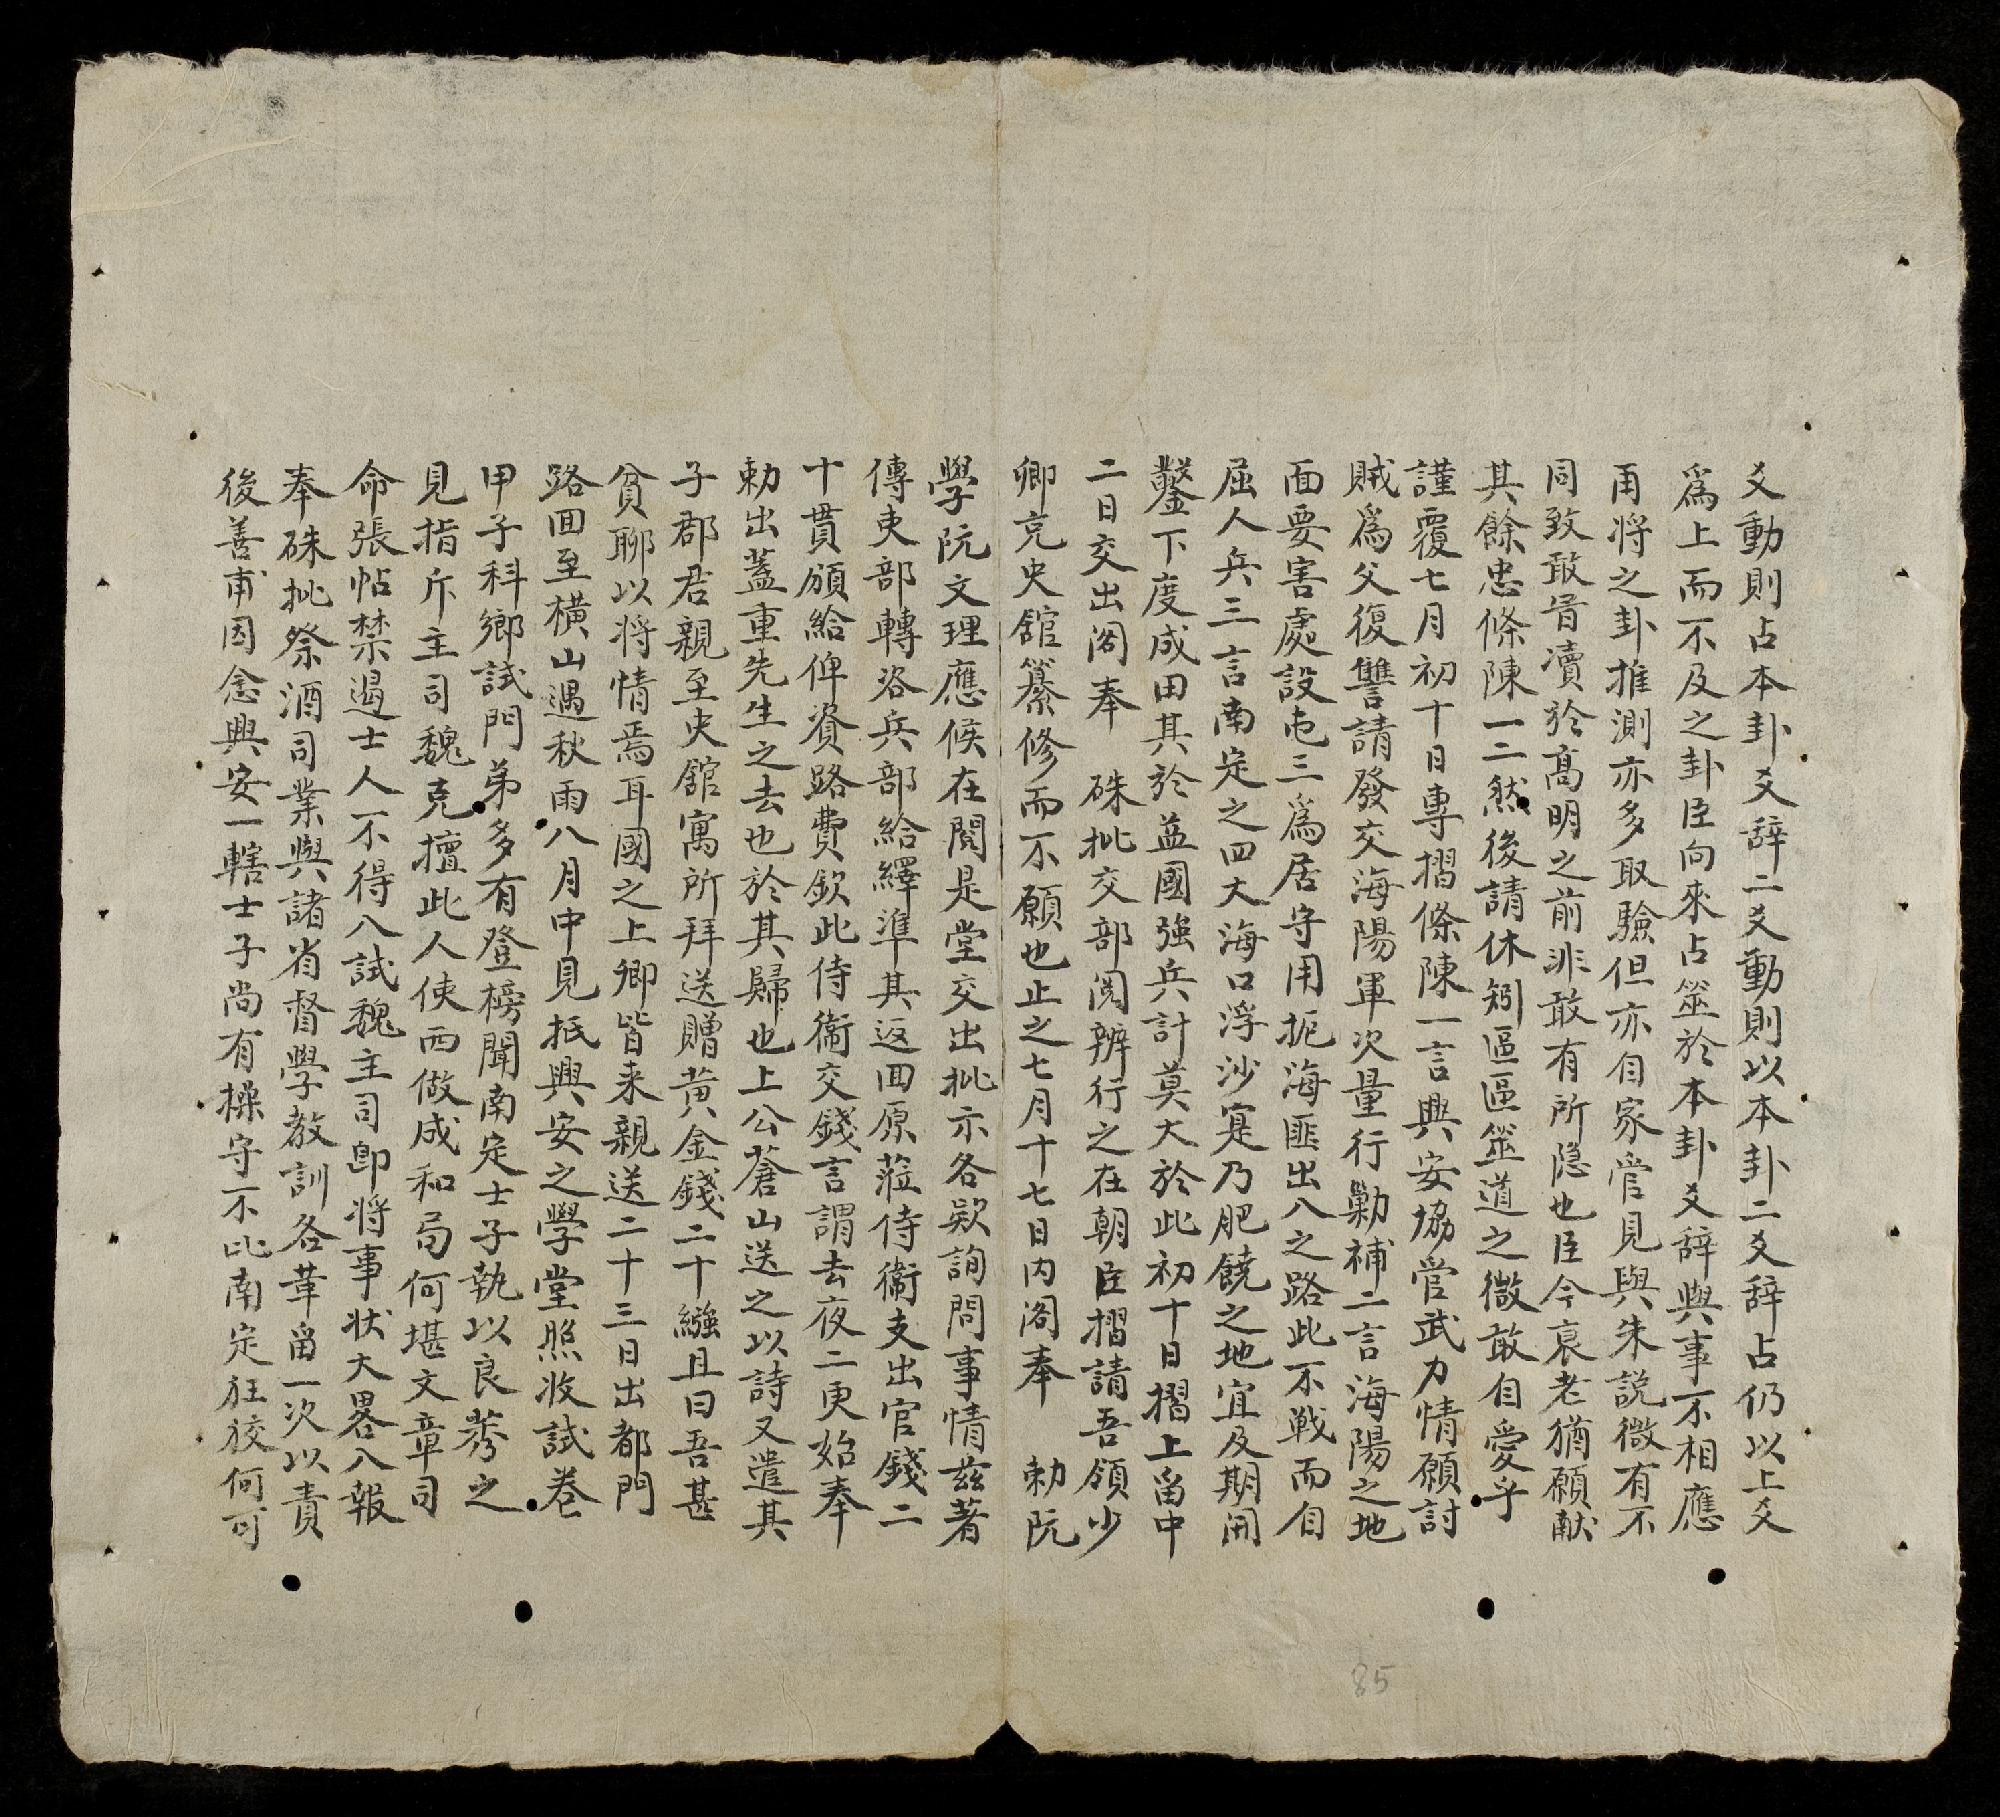 爻動則占本卦爻辞二爻動則以本卦二爻辞占仍以上爻
爲上而不及之卦臣向來占筮於本卦爻辞與事不相應
再将之卦推測亦多取驗但亦自家管見與朱説微有不
同致敢冒瀆於髙明之前非敢有所隐也臣今衰老猶願献
其餘忠條陳一二然後請休矧區區筮道之微敢自愛乎
謹覆七月初十日専摺條陳一言興安協管武力情願討
賊爲父復讐請發交海陽軍次量行勦補二言海陽之地
面要害處設屯三爲居守用扼海匪出入之路此不戦而自
屈人兵三言南定之四大海口浮沙寔乃肥饒之地宜及期開
鑿下度成田其於益國強兵計莫大於此初十日摺上畱中
二日交出閣奉　硃批交部閲辨行之在朝臣摺請吾領少
卿充史舘纂修而不願也止之七月十七日内阁奉　勅阮
學阮文理應候在閣是堂交出批示各欵詢問事情茲著
傳吏部轉咨兵部給繹準其返回原蒞侍衞支出官錢二
十貫頒給俾資路費欽此侍衞交錢言謂去夜二更始奉
勅出蓋重先生之去也於其歸也上公蒼山送之以詩又遣其
子郡君親至史舘寓所拜送贈黄金錢二十繦且曰吾甚
貧聊以将情焉耳國之上卿皆来親送二十三日出都門
路囬至橫山遇秋雨八月中見抵興安之學堂照收試卷
甲子科鄉試門弟多有登榜聞南定士子執以良莠之
見指斥主司魏克擅此人使西做成和局何堪文章司
命張帖禁遏士人不得入試魏主司即将事状大畧入報
奉硃批祭酒司業與諸省督學教訓各革畱一次以責
後善甫因念興安一轄士子尚有操守不比南定狂狡何可